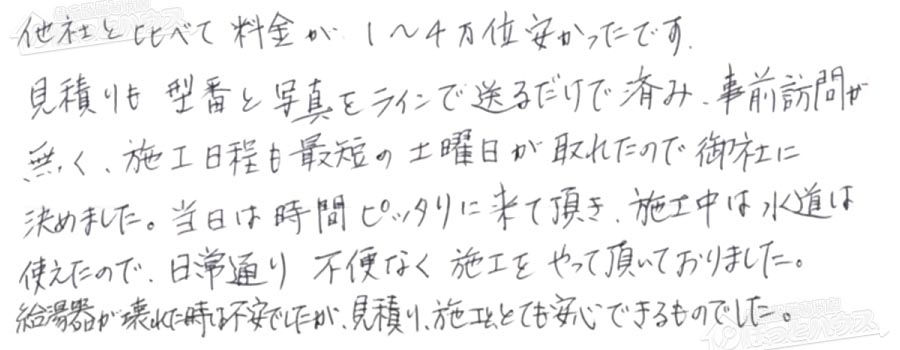 他社と比べて料金が1〜4万位安かったです.
見積りも型番と写真をラインで送るだけで済み、事前訪問が
無く、施工日程も最短の土曜日が取れたので御社に
決めました。当日は時間ピッタリに来て頂き、施工中は水道は
使えたので、日常通り不便なく施工をやって頂いておりました。
給湯器が壊れた時は不安でしたが、見積り、施工と、とても安心できるものでした。